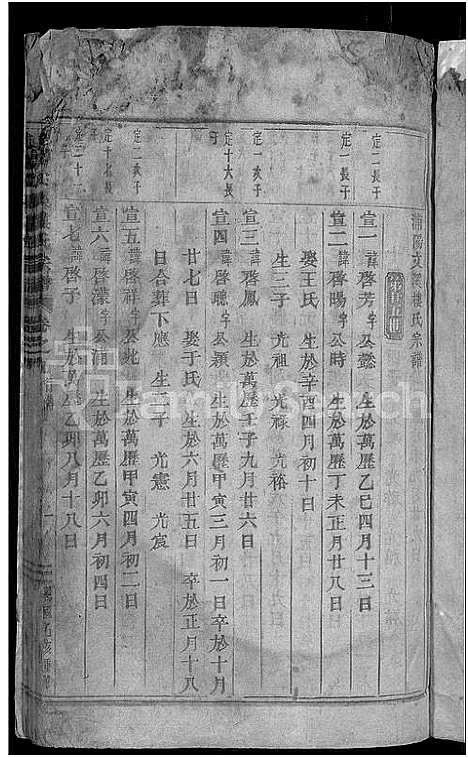 浦陽文溪樓氏宗譜
定一長子
宣一 諱啓芳字公懿 生於萬歷乙巳四月十三日
定一次子
宣二 諱啓暘字公時 生於萬歷丁未正月廿八日
娶王氏 生於辛酉四月初十日
生三子 光祖 光祿 光裕
定一三子
宣三 諱啓鳳 生於萬歷壬子九月廿六日
定十六長子
宣四 諱啓聰字公穎 生於萬歷甲寅三月初一日卒於十月
廿七日 娶于氏 生於六月廿五日 卒於正月十八
日合葬下應 生二子 光憲 光宸
定二次子
宣五 諱啓祥字公兆 生於萬歷甲寅四月初二日
定十七長子
宣六 諱啓濛字公浦 生於萬歷乙卯六月初四日
宣七 諱啓子 生於萬歷乙卯八月十八日